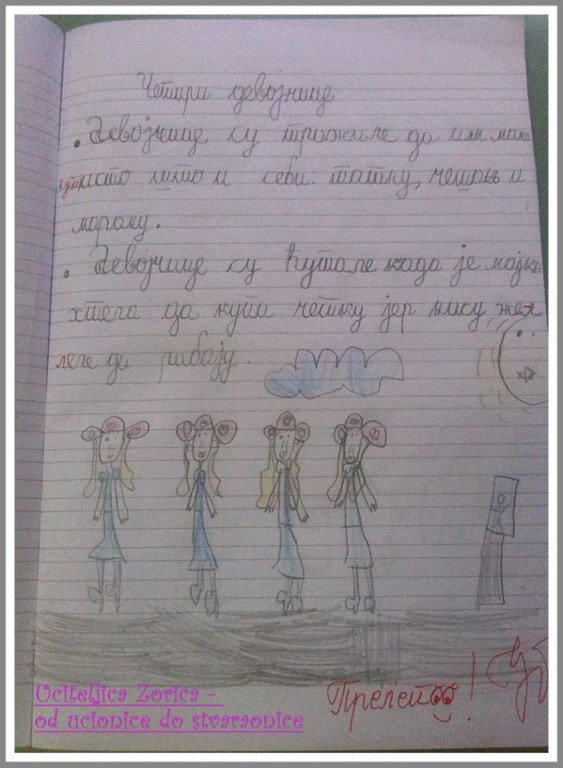 Четири девојчице
• Девојчице су тражиле да им мама
купи исто што и себи: ташну, чешаљ и
мараму.
• Девојчице су ћутале када је мајка
хтела да купи четку јер нису желе
леле да рибају.
Прелепоо!
Uciteljica Zorica -
od ucionice do stvaraonice